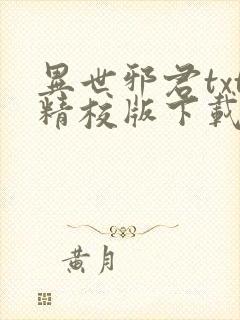 異世邪君txt
精校版下載
黄月